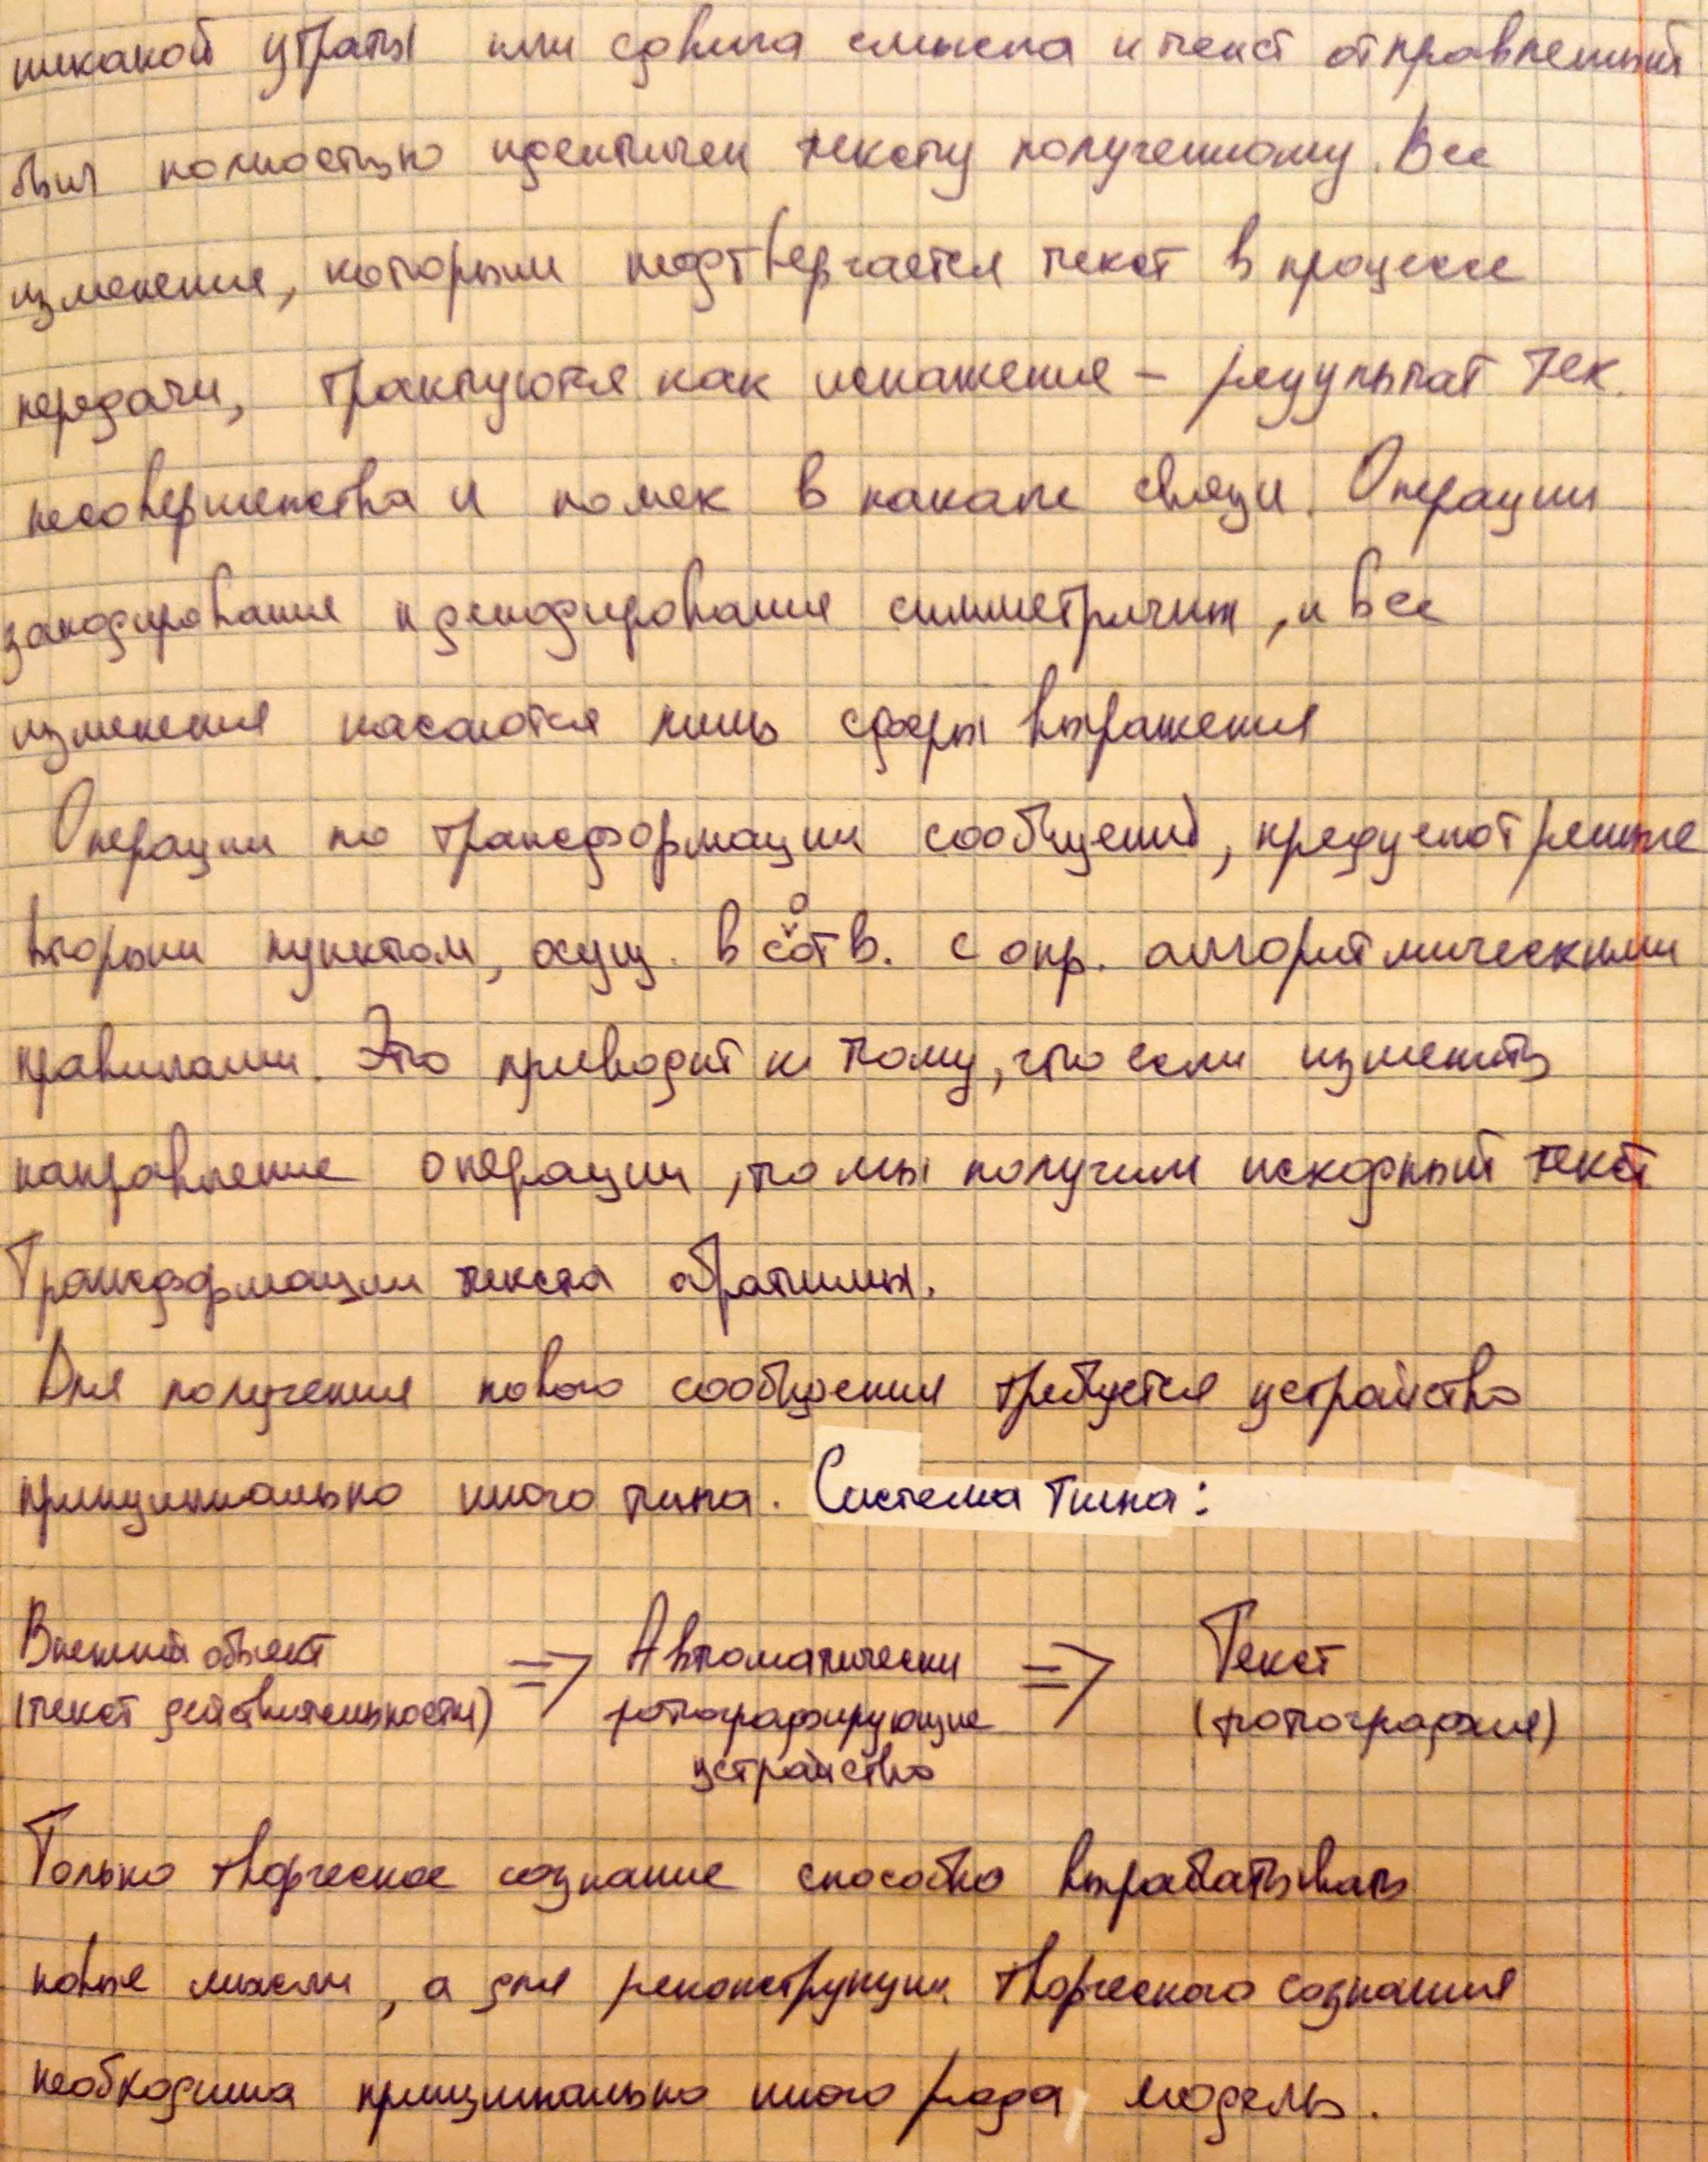 никакой утраты или сдвига смысла и текст отправленный
был полностью идентичен тексту полученному. Все
изменения, которым подтвергается текст в процессе
передачи, трактуются как искажения – результат тех.
несовершенства и помех в канале связи. Операции
закодирования и декодирования симметричны, и все
изменения касаются лишь сферы выражения
Операции по трансформации сообщений, предусмотренные
вторым пунктом, осущ. в соотв. с опр. алгоритмическими
правилами. Это приводит к тому, что если изменить
направление операции, то мы получим исходный текст
Трансформации текста обратимы.
Для получения нового сообщения требуется устройство
принципиально иного типа. Система типа:
Внешний объект => Автоматически => Текст
(текст действительности) фотографирующие (фотография)
устройство
Только творческое сознание способно вырабатывать
новые мысли, а для реконструкции творческого сознания
необходима принципиально иного рода модель.